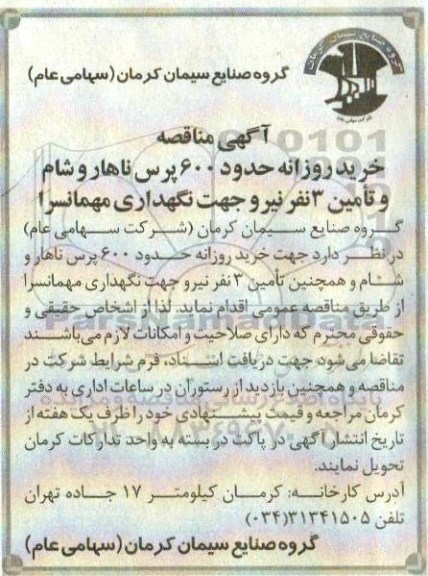 گروه صنایع سیمان کرمان
گروه صنایع سیمان کرمان (سهامی عام)
آگهی مناقصه
خرید روزانه حدود ۶۰۰ پرس ناهار و شام
و تأمین ۳ نفر نیرو جهت نگهداری مهمانسرا
گروه صنایع سیمان کرمان (شرکت سهامی عام)
در نظر دارد جهت خرید روزانه حدود ۶۰۰ پرس ناهار و
شام و همچنین تأمین ۳ نفر نیرو جهت نگهداری مهمانسرا
از طریق مناقصه عمومی اقدام نماید. لذا از اشخاص حقیقی و
حقوقی محترم که دارای صلاحیت و امکانات لازم می‌باشند
تقاضا می‌شود جهت دریافت اسناد، فرم شرایط شرکت در
مناقصه و همچنین بازدید از رستوران در ساعات اداری به دفتر
کرمان مراجعه و قیمت پیشنهادی خود را ظرف یک هفته از
تاریخ انتشار آگهی در پاکت در بسته به واحد تدارکات کرمان
تحویل نمایند.
آدرس کارخانه: کرمان کیلومتر ۱۷ جاده تهران
تلفن ۳۱۳۴۱۵۰۵(۰۳۴)
گروه صنایع سیمان کرمان (سهامی عام)